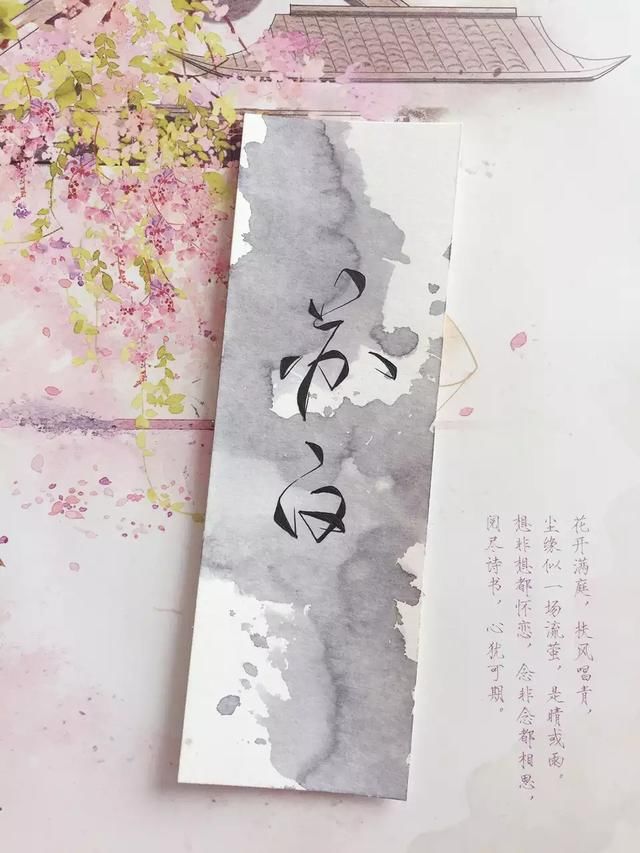 苏白
花开满庭，扶风唱青，
尘缘似一场流萤，是晴或雨。
想非想都怀恋，念非念都相思，
阅尽诗书，心犹可期。